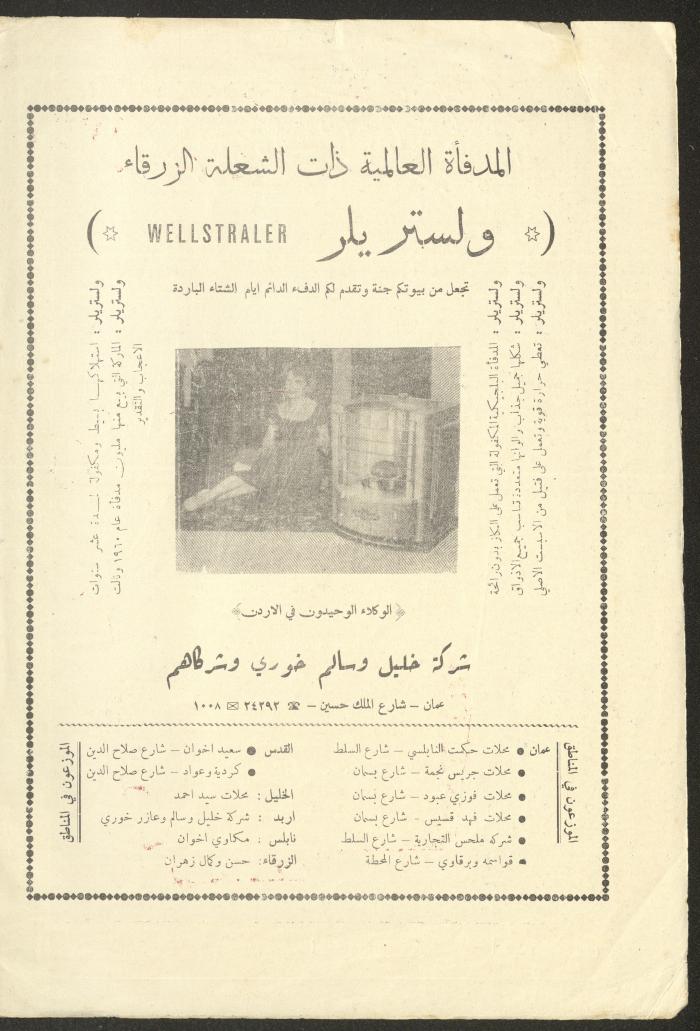 المدفأة العالمية ذات الشعلة الزرقاء
( ولستريلر WELLSTRALER )
تجعل من بيوتكم جنة وتقدم لكم الدفء الدائم ايام الشتاء الباردة
ولستريلر : تعطي حرارة قوية وتعمل على فتيل من الاسبست الاصلي
ولستريلر : شكلها جميل جذاب والوانها متعددة تناسب جميع الاذواق
ولستريلر : المدفأة البلجيكية المكفولة التي تعمل على الكاز بدون رائحة
ولستريلر : استهلاكها بسيط ومكفولة لمدة عشر سنوات
ولستريلر : الماركة التي بيع منها مليون مدفأة عام ١٩٦٠ ونالت
الاعجاب والتقدير
الوكلاء الوحيدون في الاردن
شركة خليل وسالم خوري وشركاهم
عمان – شارع الملك حسين – ☎ ٢٤٢٩٢ ✉ ١٠٠٨
الموزعون في المناطق
عمان ● محلات حكمت النابلسي – شارع السلط
● محلات جريس نجمة – شارع بسمان
● محلات فوزي عبود – شارع بسمان
● محلات فهد قسيس - شارع بسمان
● شركه ملحس التجارية – شارع السلط
● قواسمه وبرقاوي – شارع المحطة
القدس ● سعيد اخوان – شارع صلاح الدين
● كردية وعواد – شارع صلاح الدين
الخليل : محلات سيد احمد
اربد : شركة خليل وسالم وعازر خوري
نابلس : مكاوي اخوان
الزرقاء: حسن وكمال زهران
الموزعون في المناطق